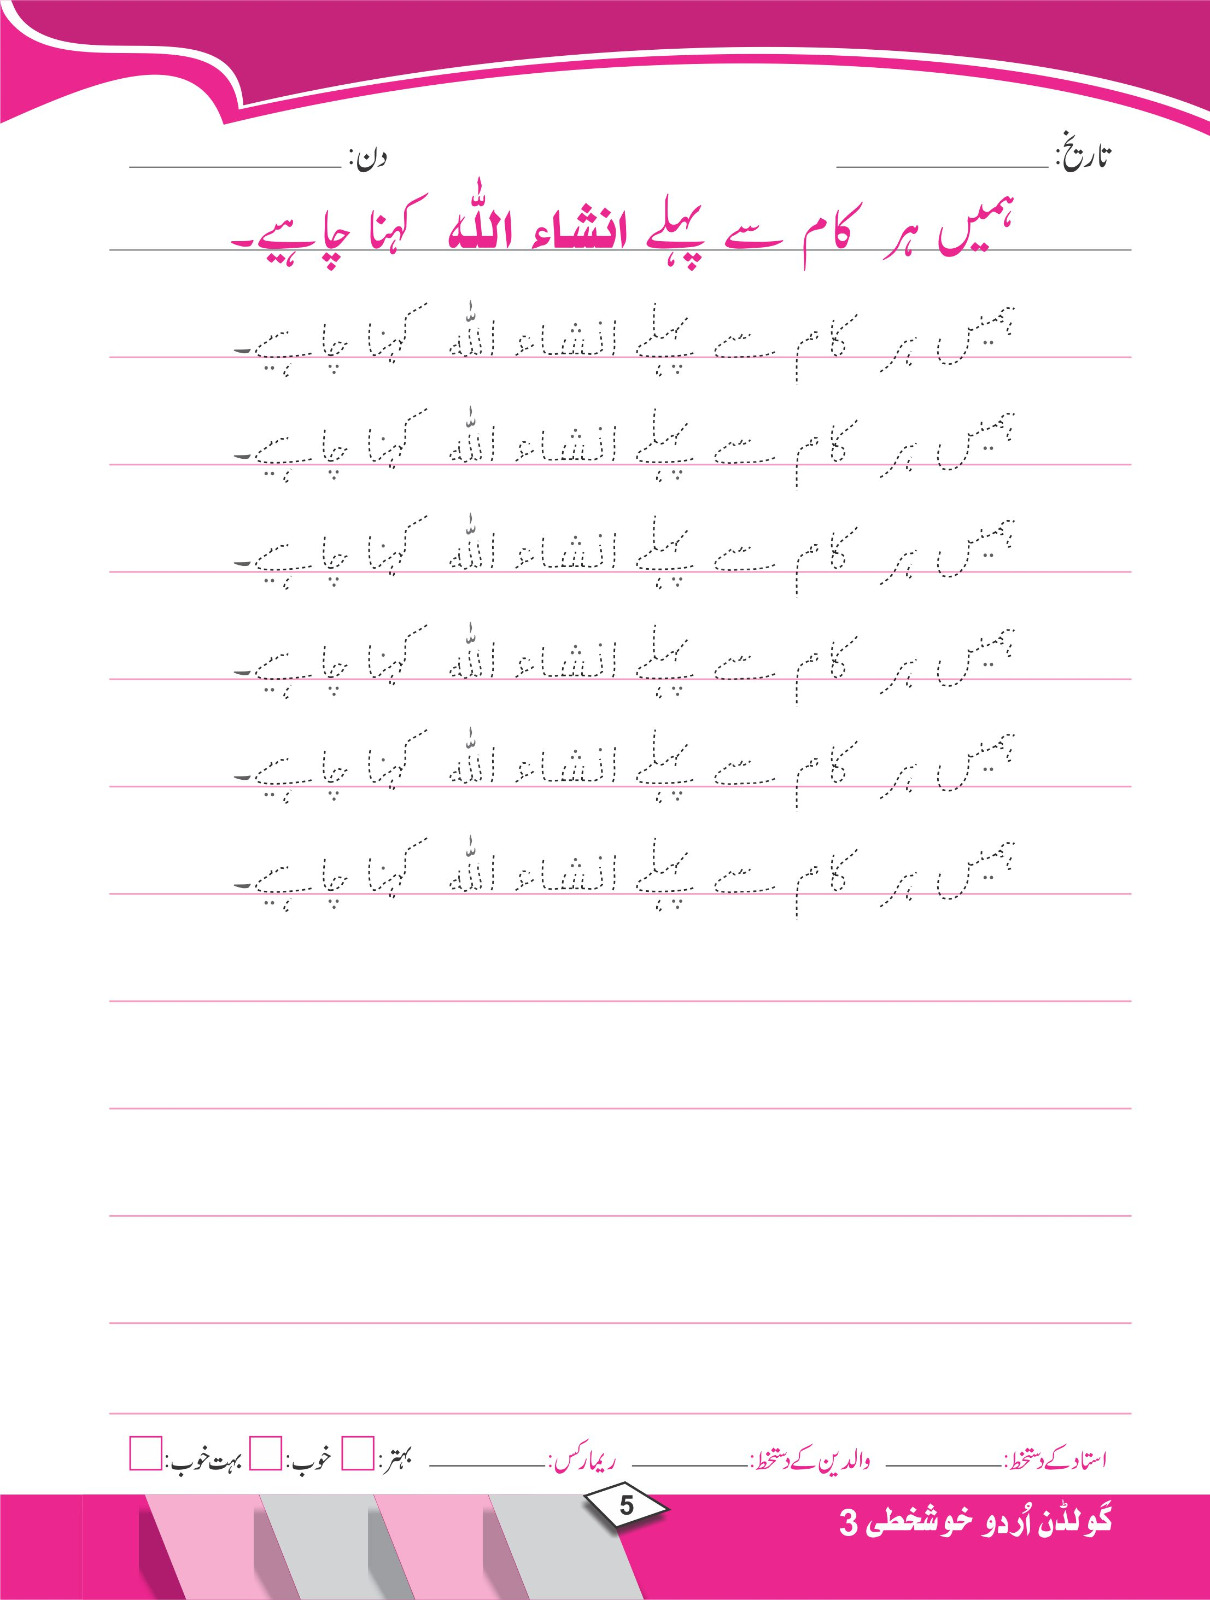 تاریخ: ____________ دن: ____________
ہمیں ہر کام سے پہلے انشاء اللہ کہنا چاہیے۔
ہمیں ہر کام سے پہلے انشاء اللہ کہنا چاہیے۔
ہمیں ہر کام سے پہلے انشاء اللہ کہنا چاہیے۔
ہمیں ہر کام سے پہلے انشاء اللہ کہنا چاہیے۔
ہمیں ہر کام سے پہلے انشاء اللہ کہنا چاہیے۔
ہمیں ہر کام سے پہلے انشاء اللہ کہنا چاہیے۔
ہمیں ہر کام سے پہلے انشاء اللہ کہنا چاہیے۔
استاد کے دستخط: ________ والدین کے دستخط: ________ ریمارکس: ________ بہتر: خوب: بہت خوب:
گولڈن اُردو خوشخطی 3
5